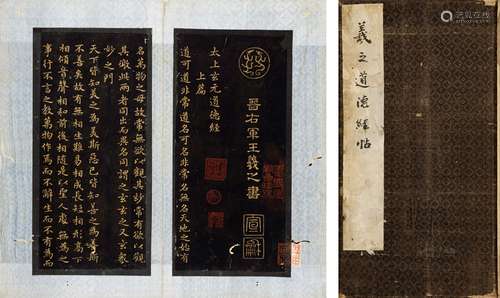 羲之道德經帖
晉右軍王羲之書
太上玄元道德經
上篇
道可道非常道名可名非常名無名天地之始有
名萬物之母故常無欲以觀其妙常有欲以觀
其徼此兩者同出而異名同謂之玄玄之又玄衆
妙之門
天下皆知美之為美斯惡已皆知善之為善斯
不善矣故有無相生難易相成長短相形高下
相傾音聲相和前後相隨是以聖人處無為之
事行不言之教萬物作焉而不辭生而不有為而